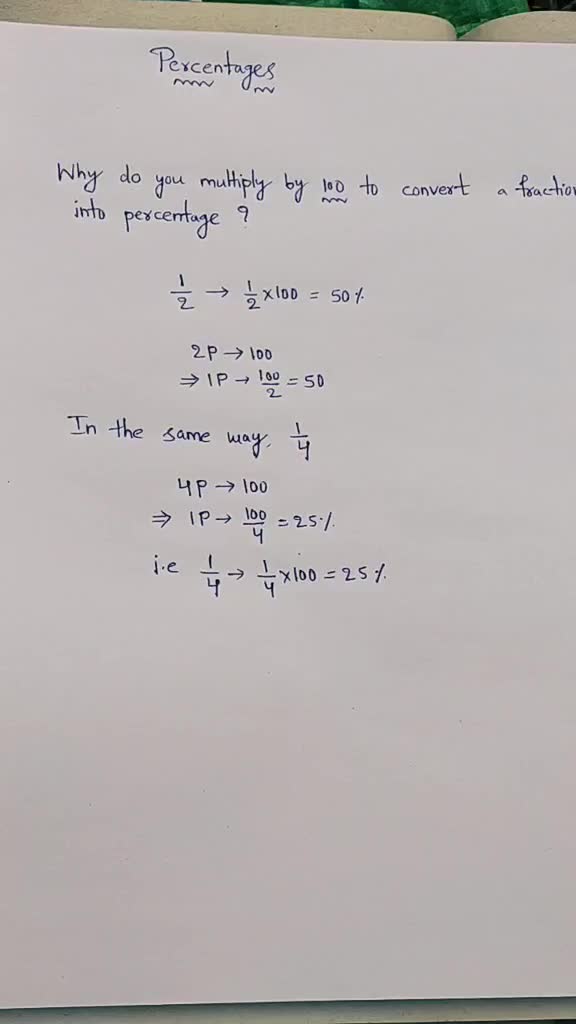 Percentages
Why do you multiply by 100 to convert a fraction
into percentage ?
1/2 → 1/2 × 100 = 50%
2P → 100
⇒ 1P → 100/2 = 50
In the same way, 1/4
4P → 100
⇒ 1P → 100/4 = 25%
i.e 1/4 → 1/4 × 100 = 25%